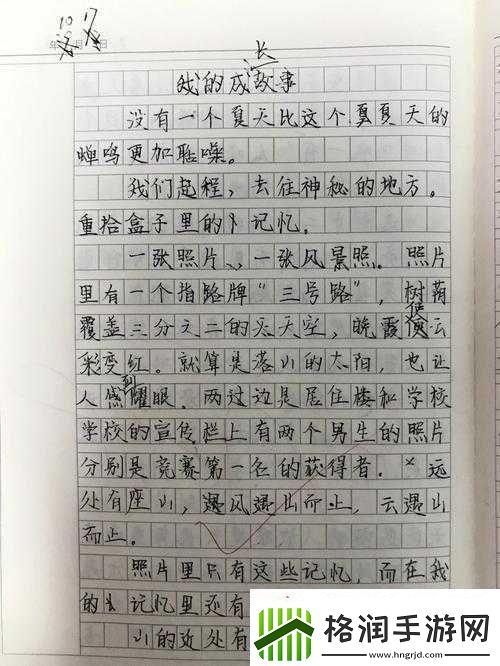 10 17
年 月 日
我的成长故事
没有一个夏天比这个夏夏天的
蝉鸣更加聒噪。
我们起程，去往神秘的地方。
重拾盒子里的记忆。
一张照片、一张风景照。照片
里有一个指路牌“三号路”，树荫
覆盖三分之二的天天空，晚霞使云
彩变红。就算是落山的太阳，也让
人感到耀眼。两过边是居住楼和学校
学校的宣传栏上有两个男生的照片
分别是竞赛第一名的获得者。远
处有座山，遇风遇山而止，云遇山
而止。
照片里只有这些记忆，而在我
的记忆里还有
山的近处有
格润手游网
www.hngrjd.com